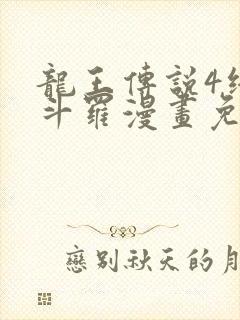 龍王傳說4終
斗羅漫畫免
戀別秋天的月